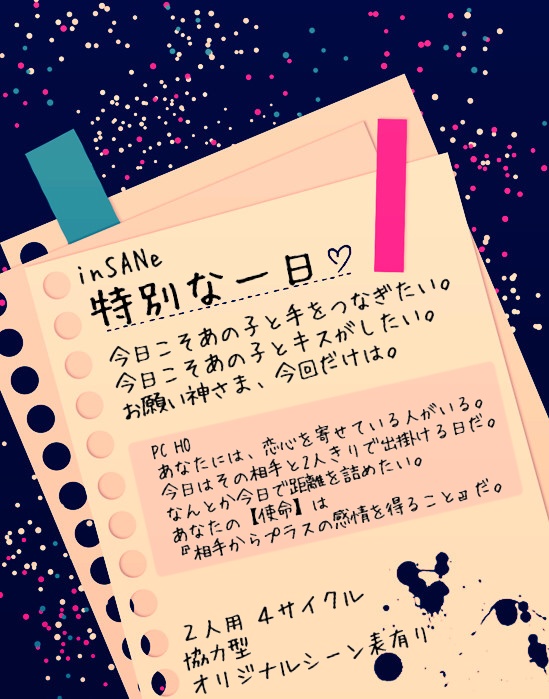 inSANe
特別な一日♡
今日こそあの子と手をつなぎたい。
今日こそあの子とキスがしたい。
お願い神さま、今回だけは。
PC HO
あなたには、恋心を寄せている人がいる。
今日はその相手と2人きりで出掛ける日だ。
なんとか今日で距離を詰めたい。
あなたの【使命】は
『相手からプラスの感情を得ること』だ。
2人用 4サイクル
協力型
オリジナルシーン表有り